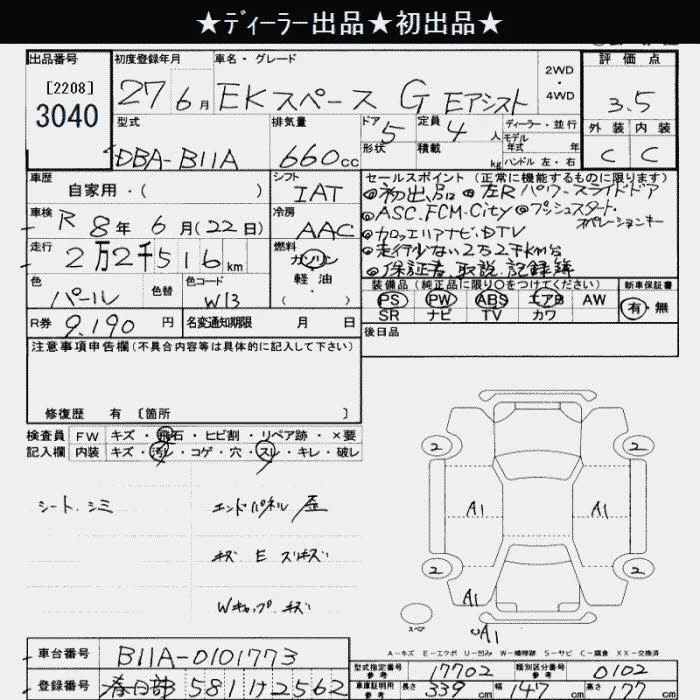 ★ディーラー出品★初出品★
出品番号 初度登録年月 車名・グレード 評価点
[2208] 3040 27 6月 EKスペース G Eアシスト 2WD・4WD 3.5
型式 排気量 ドア 5 定員 4人 ディーラー・並行 外装 内装
形状 積載 kg モデル年式 年
DBA-B11A 660cc ハンドル 左・右 C C
車歴 シフト セールスポイント (正常に機能するものに限ります)
自家用・( ) IAT ◎初出品 ◎左Rパワースライドドア
車検 R 8年 6月(22日) 冷房 AAC ◎ASC.FCM-City ◎プッシュスタート・
オペレーションキー
◎カロッェリアナビ・DTV
走行 2万2千516km 燃料 ガソリン ◎走行少ない2万2千km台
軽油 ( ) ◎保証書 取説 記録簿
色 色替 色コード 装備品 (純正品に限り○をつけてください) 新車保証書
パール W13 PS PW ABS エアB AW 有・無
SR ナビ TV カワ
R券 9.190円 名変通知期限 月 日 後日品
注意事項申告欄 (不具合内容等は具体的に記入して下さい)
修復歴 有 〔箇所 〕
検査員 FW キズ・飛石・ヒビ割・リペア跡・×要
記入欄 内装 キズ・汚レ・コゲ・穴・スレ・キレ・破レ
シート.シミ エンドパネル 歪
キズ E スリキズ
Wキャップ キズ
2 2
A1 A1
2 2
A1
スペア A1
A-キズ E-エクボ U-凹み W-補修跡 S-サビ C-腐食 XX-交換済
車台番号 B11A-0101773 型式指定番号 参考 17702 類別区分番号 参考 0102
登録番号 春日部 581 け 2562 車庫証明用 参考 長さ 339cm 幅 147cm 高さ 177cm